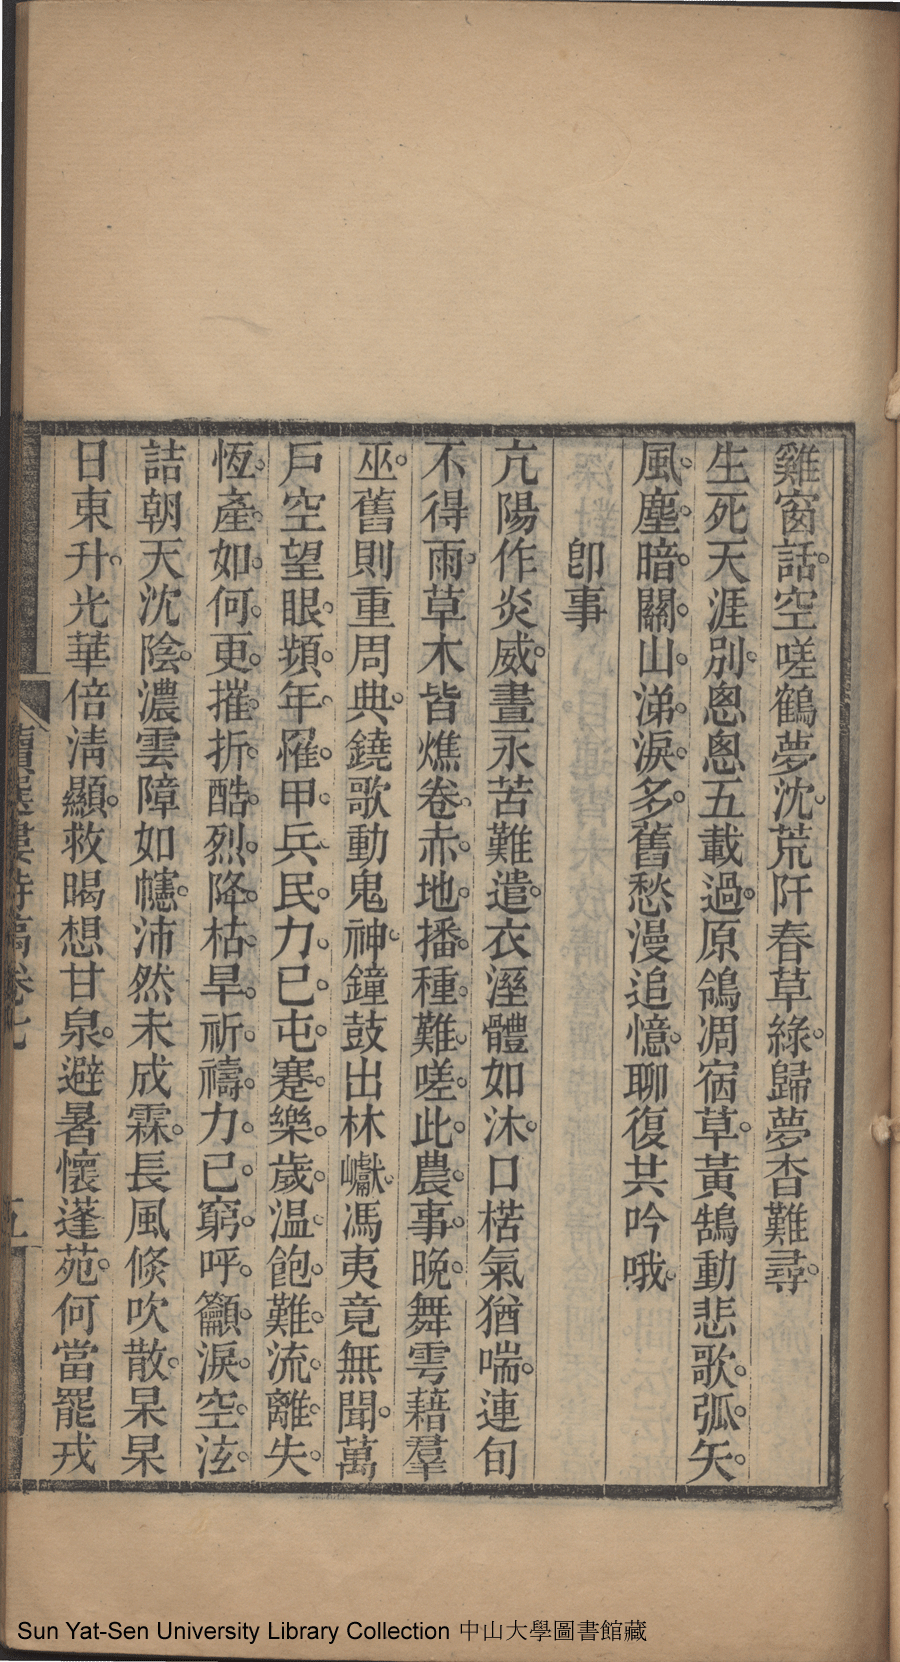 雞窗話。空嗟鶴夢沈。荒阡春草綠。歸夢杳難尋。
生死天涯別。悤悤五載過。原鴒凋宿草。黃鵠動悲歌。弧矢。
風。塵。暗。關。山。涕。淚。多。舊愁漫追憶。聊復共吟哦。
卽事
亢陽作炎威。晝永苦難遣。衣溼體如沐。口楛氣猶喘。連旬
不得雨。草木皆燋卷。赤。地。播。種。難。嗟。此。農。事。晚。舞雩藉羣
巫。舊則重周典。鐃歌動鬼神。鐘鼓出林巘。馮夷竟無聞。萬
戶空望眼。頻。年。罹。甲。兵。民。力。已。屯。蹇。樂。歲。温。飽。難。流。離。失。
恆。產。如。何。更。摧。折。酷。烈。降。枯。旱。祈。禱。力。已。窮。呼。籲。淚。空。泫。
詰朝天沈陰。濃雲障如幰。沛然未成霖。長風倐吹散。杲杲
日東升。光華倍淸顯。救暍想甘泉。避暑懷蓬苑。何當罷戎
詩稿卷七
五
Sun Yat-Sen University Library Collection 中山大學圖書館藏